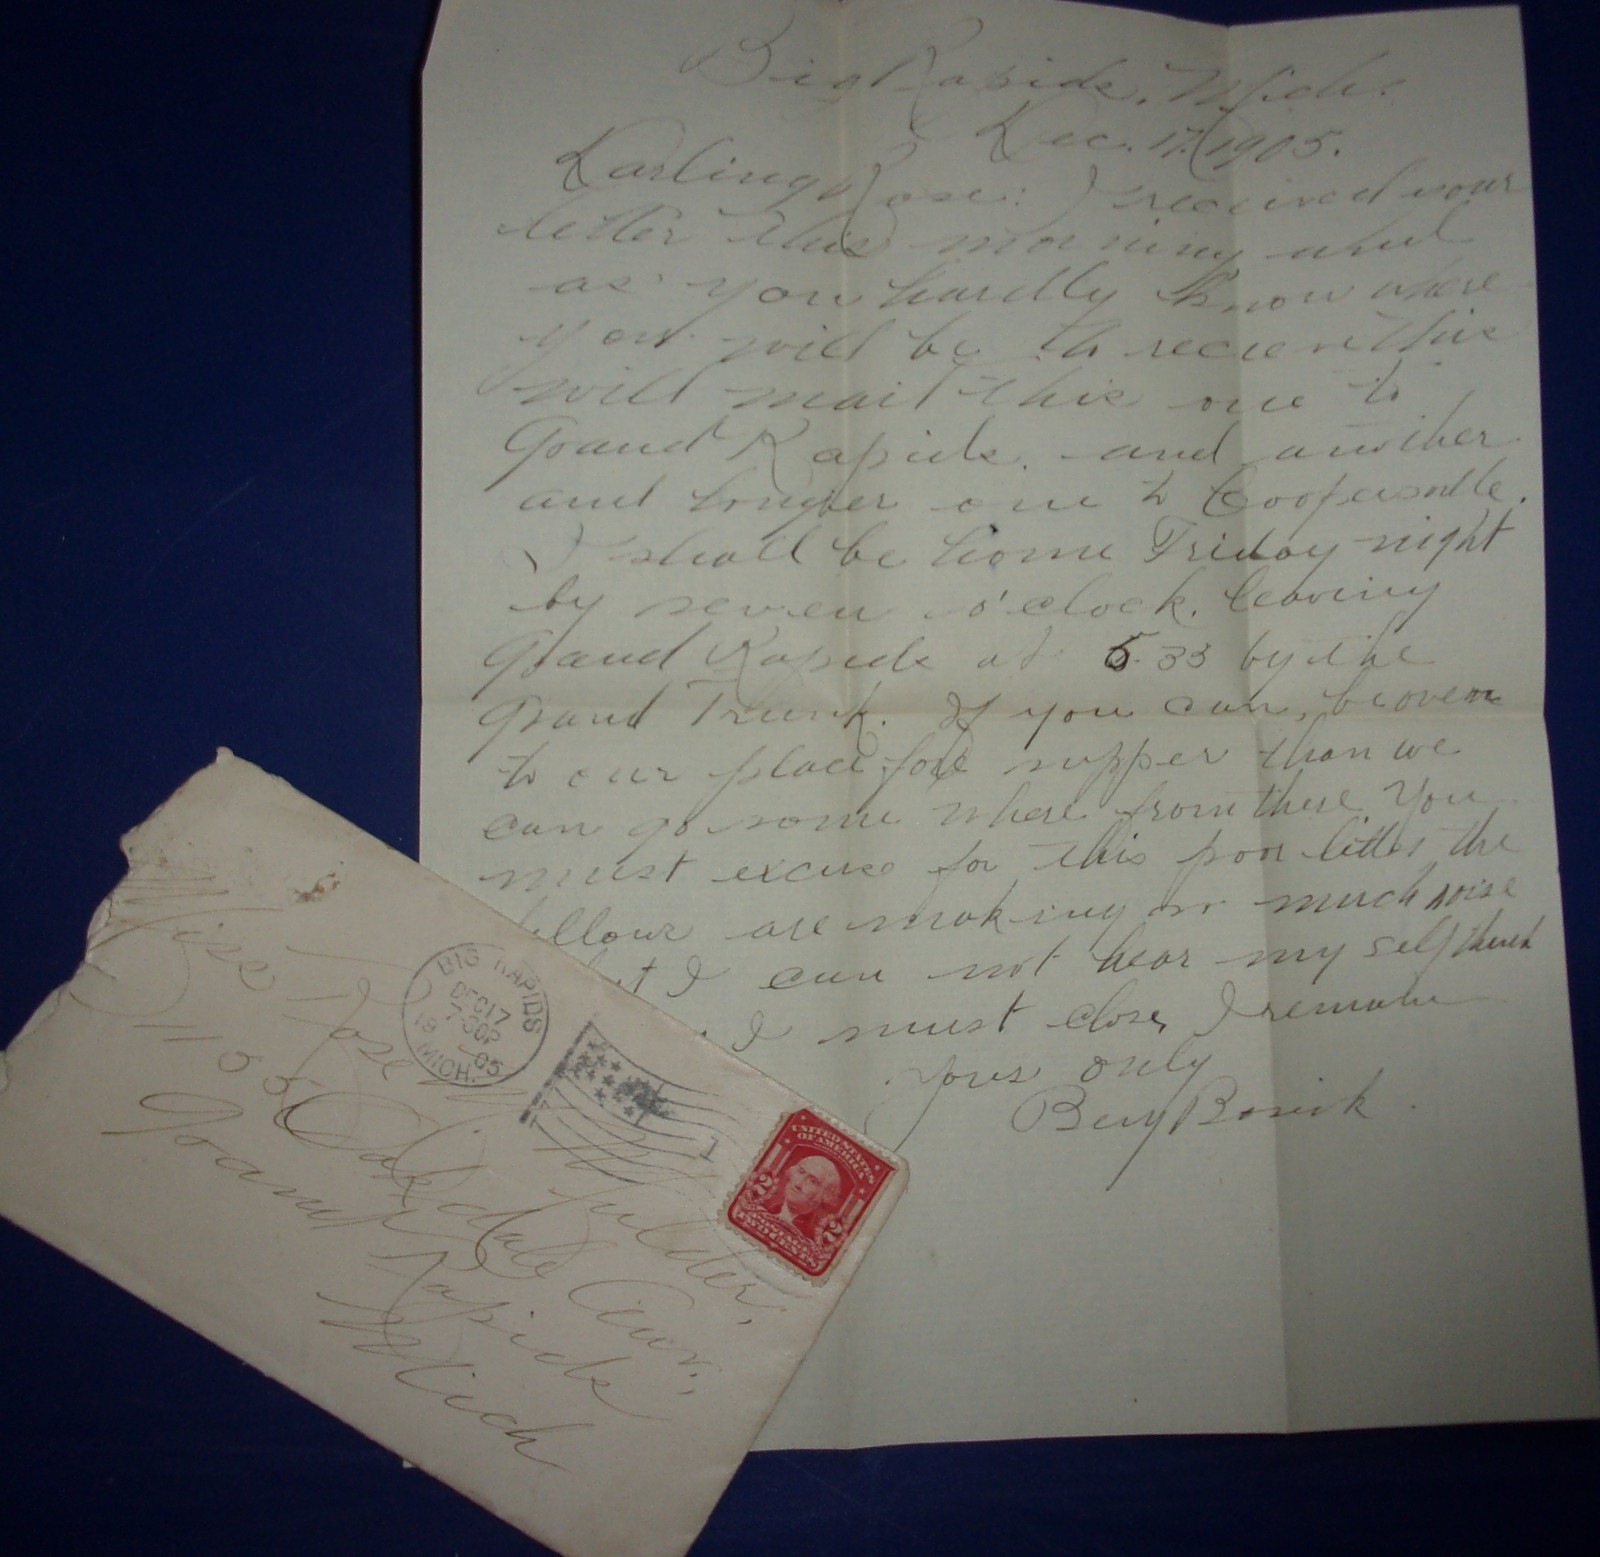 Big Rapids, Mich.
Dec. 17, 1905.
Darling Rose: I received your
letter this morning and
as you hardly know where
you will be to recieve this
will mail this one to
Grand Rapids. and another
and longer one to Coopersville.
I shall be home Friday night
by seven o'clock. leaving
Grand Rapids at 5.33 by the
Grand Trunk. If you can, be over
to our place for supper than we
can go some where from there You
must excuse for this poor letter the
fellows are making so much noise
that I can not hear my self think
I must close, I remain
Yours only
Ben
BIG RAPIDS
DEC 17
7-30P
1905
MICH.
Miss Rose Mulder,
1155 Oakdale Ave.,
Grand Rapids
Mich
UNITED STATES
OF AMERICA
2 2
POSTAGE
TWO CENTS